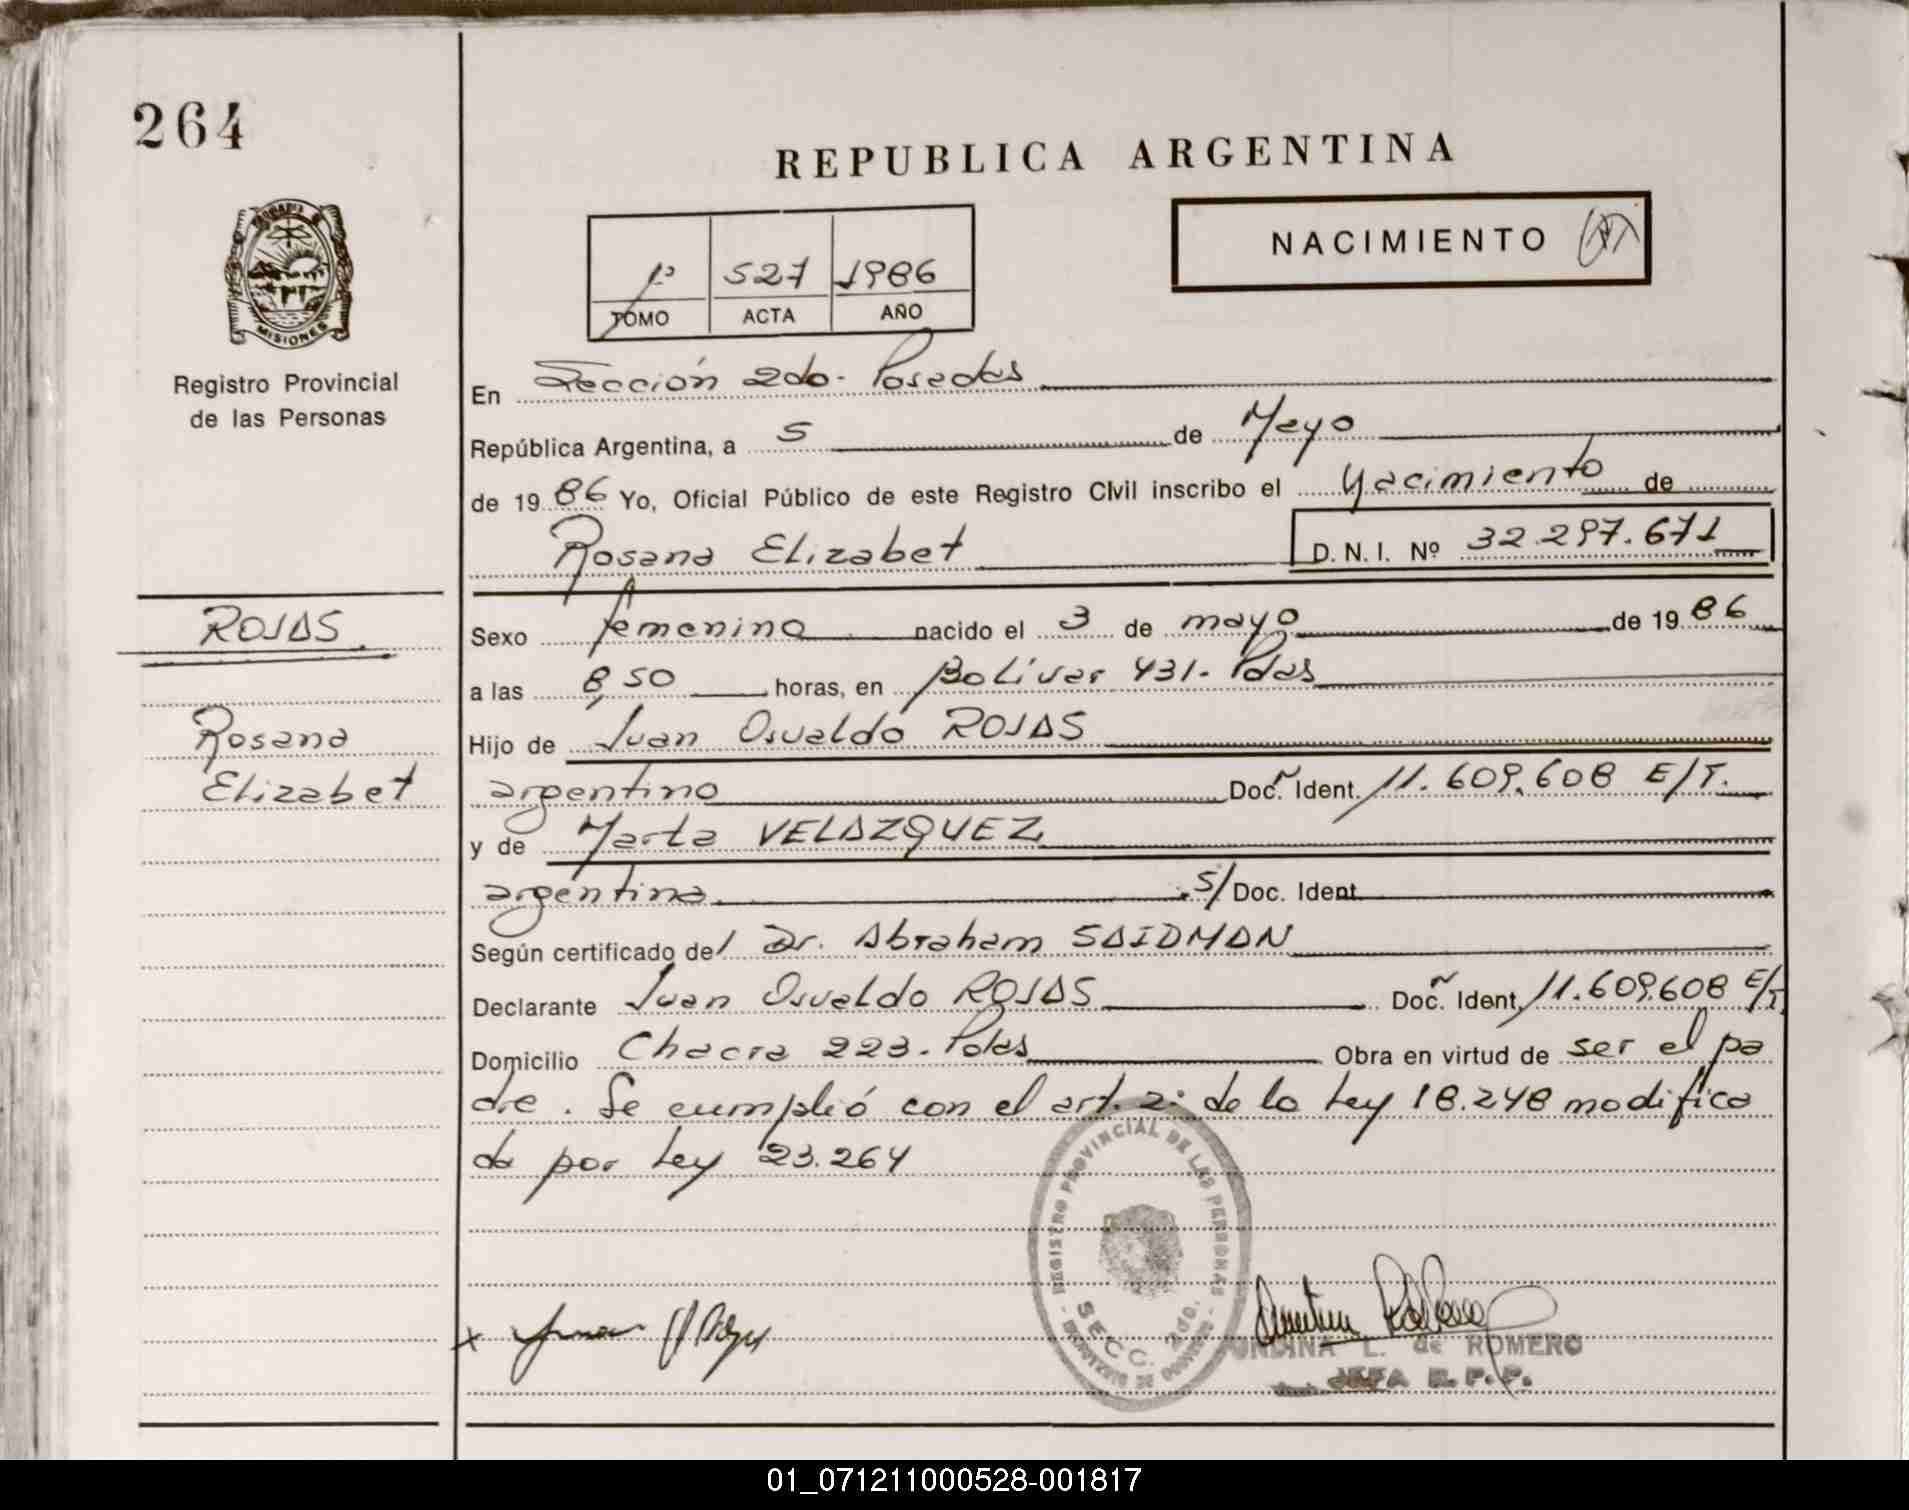 264
REPUBLICA ARGENTINA
NACIMIENTO
1º 527 1986
TOMO ACTA AÑO
MISIONES
Registro Provincial
de las Personas
En Sección 2da. Posadas
República Argentina, a 5 de Mayo
de 1986 Yo, Oficial Público de este Registro Civil inscribo el Nacimiento de
Rosana Elizabet D. N. I. Nº 32.297.671
ROJAS
Rosana
Elizabet
Sexo femenino nacido el 3 de mayo de 1986
a las 8,50 horas, en Bolívar 431. Pdas
Hijo de Juan Osvaldo ROJAS
argentino Doc. Ident. 11.609.608 E/T.
y de Marta VELAZQUEZ
argentina S/ Doc. Ident.
Según certificado del Dr. Abraham SAIDMAN
Declarante Juan Osvaldo ROJAS Doc. Ident. 11.609.608 E/T.
Domicilio Chacra 223. Pdas Obra en virtud de ser el pa
dre. Se cumplió con el art. 2º de la Ley 18.248 modifica
da por Ley 23.264
REGISTRO PROVINCIAL DE LAS PERSONAS
SECC. 2da.
x
UNDINA L. de ROMERO
JEFA R.P.P.
01_071211000528-001817